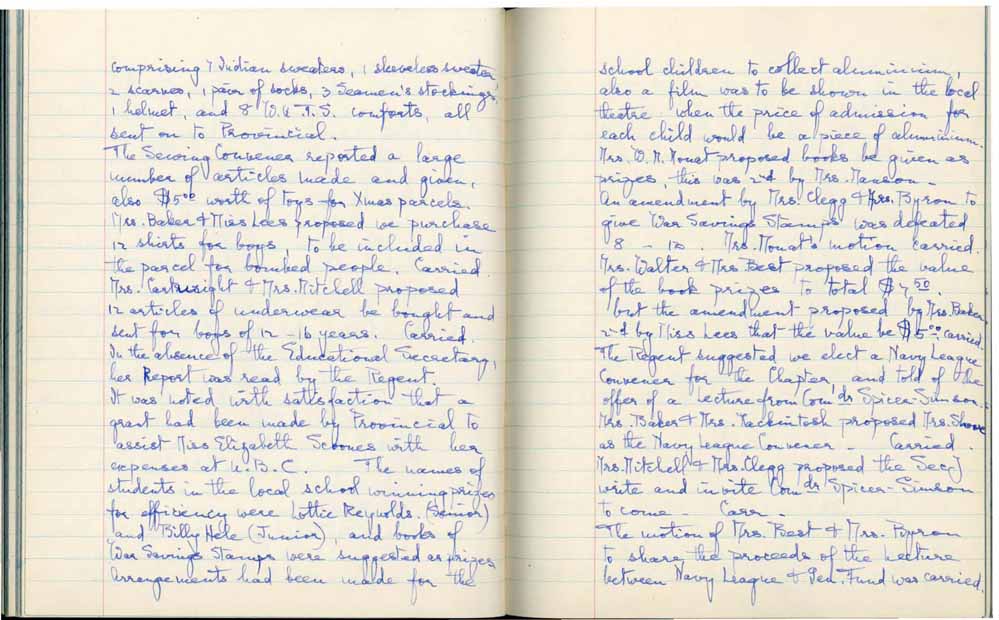 comprising 7 Indian sweaters, 1 sleeveless sweater
2 scarves, 1 pair of socks, 3 Seamen's stockings,
1 helmet, and 8 W.A.T.S. comforts, all
sent on to Provincial.
The Sewing Convener reported a large
number of articles made and given,
also $5.00 worth of Toys for Xmas parcels.
Mrs. Baker & Miss Lees proposed we purchase
12 shirts for boys, to be included in
the parcel for bombed people. Carried.
Mrs. Cartwright & Mrs. Mitchell proposed
12 articles of underwear be bought and
sent for boys of 12 - 16 years. Carried.
In the absence of the Educational Secretary,
her Report was read by the Regent.
It was noted with satisfaction that a
grant had been made by Provincial to
assist Miss Elizabeth Scoones with her
expenses at U.B.C. The names of
students in the local school winning prizes
for efficiency were Lottie Reynolds. (Senior)
and Billy Hele (Junior), and books of
War Savings Stamps were suggested as prizes
Arrangements had been made for the
school children to collect aluminium,
also a film was to be shown in the local
theatre when the price of admission for
each child would be a piece of aluminium.
Mrs. W. M. Mouat proposed books be given as
prizes, this was 2nd by Mrs. Manson -
An amendment by Mrs. Clegg & Mrs. Byron to
give War Savings Stamps was defeated
8 - 10. Mrs. Mouat's motion carried.
Mrs. Walter & Mrs Best proposed the value
of the book prizes to total $7.50.
but the amendment proposed by Mrs. Baker
2nd by Miss Lees that the value be $5.00 carried.
The Regent suggested we elect a Navy League
Convener for the Chapter, and told of the
offer of a lecture from Comdr Spicer-Simson.
Mrs. Baker & Mrs. Mackintosh proposed Mrs. Shove
as the Navy League Convener - Carried.
Mrs. Mitchell & Mrs. Clegg proposed the Secy
write and invite Comdr Spicer-Simson
to come - Carr -
The motion of Mrs. Best & Mrs. Byron
to share the proceeds of the Lecture
between Navy League & Gen. Fund was carried.